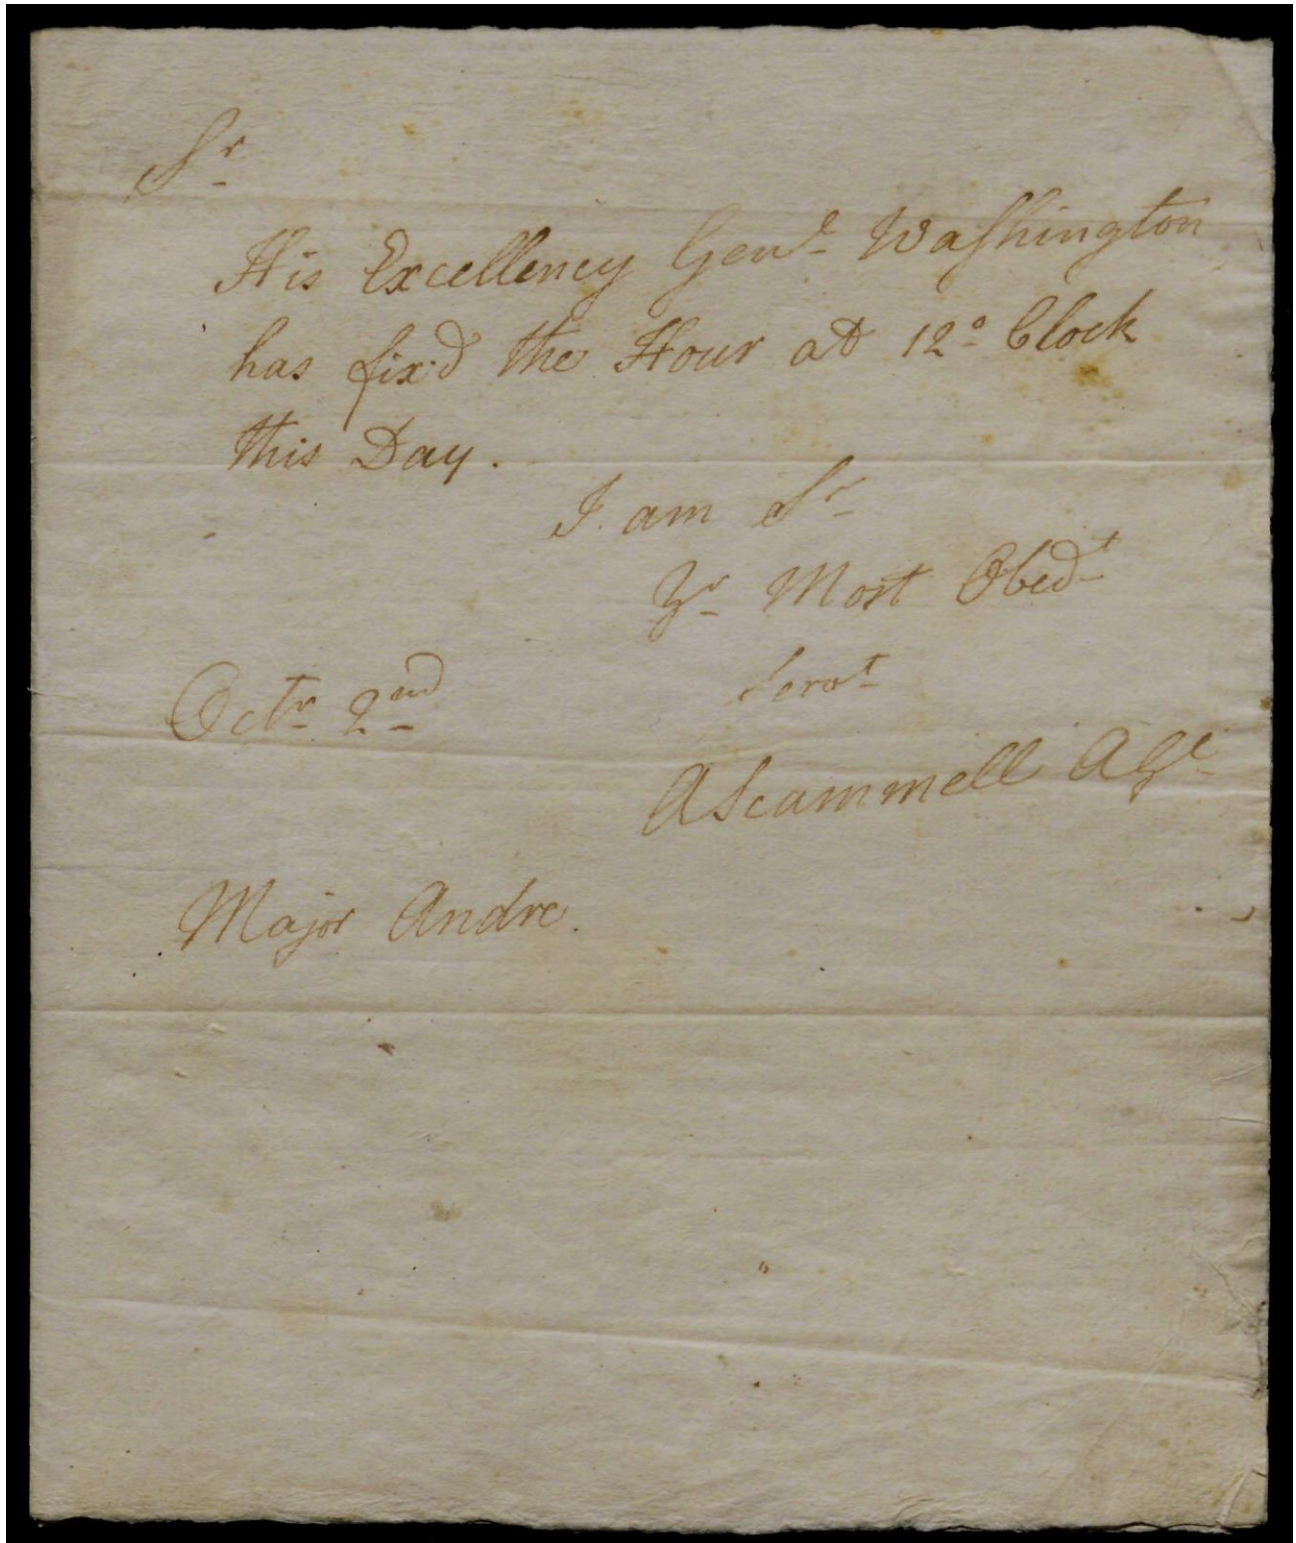 Sr
His Excellency Genl Washington
has fix'd the Hour at 12 o Clock
this Day.
I am Sr
Yr Most Obedt
Servt
Octr 2nd
AScammell AGl
Major Andre.